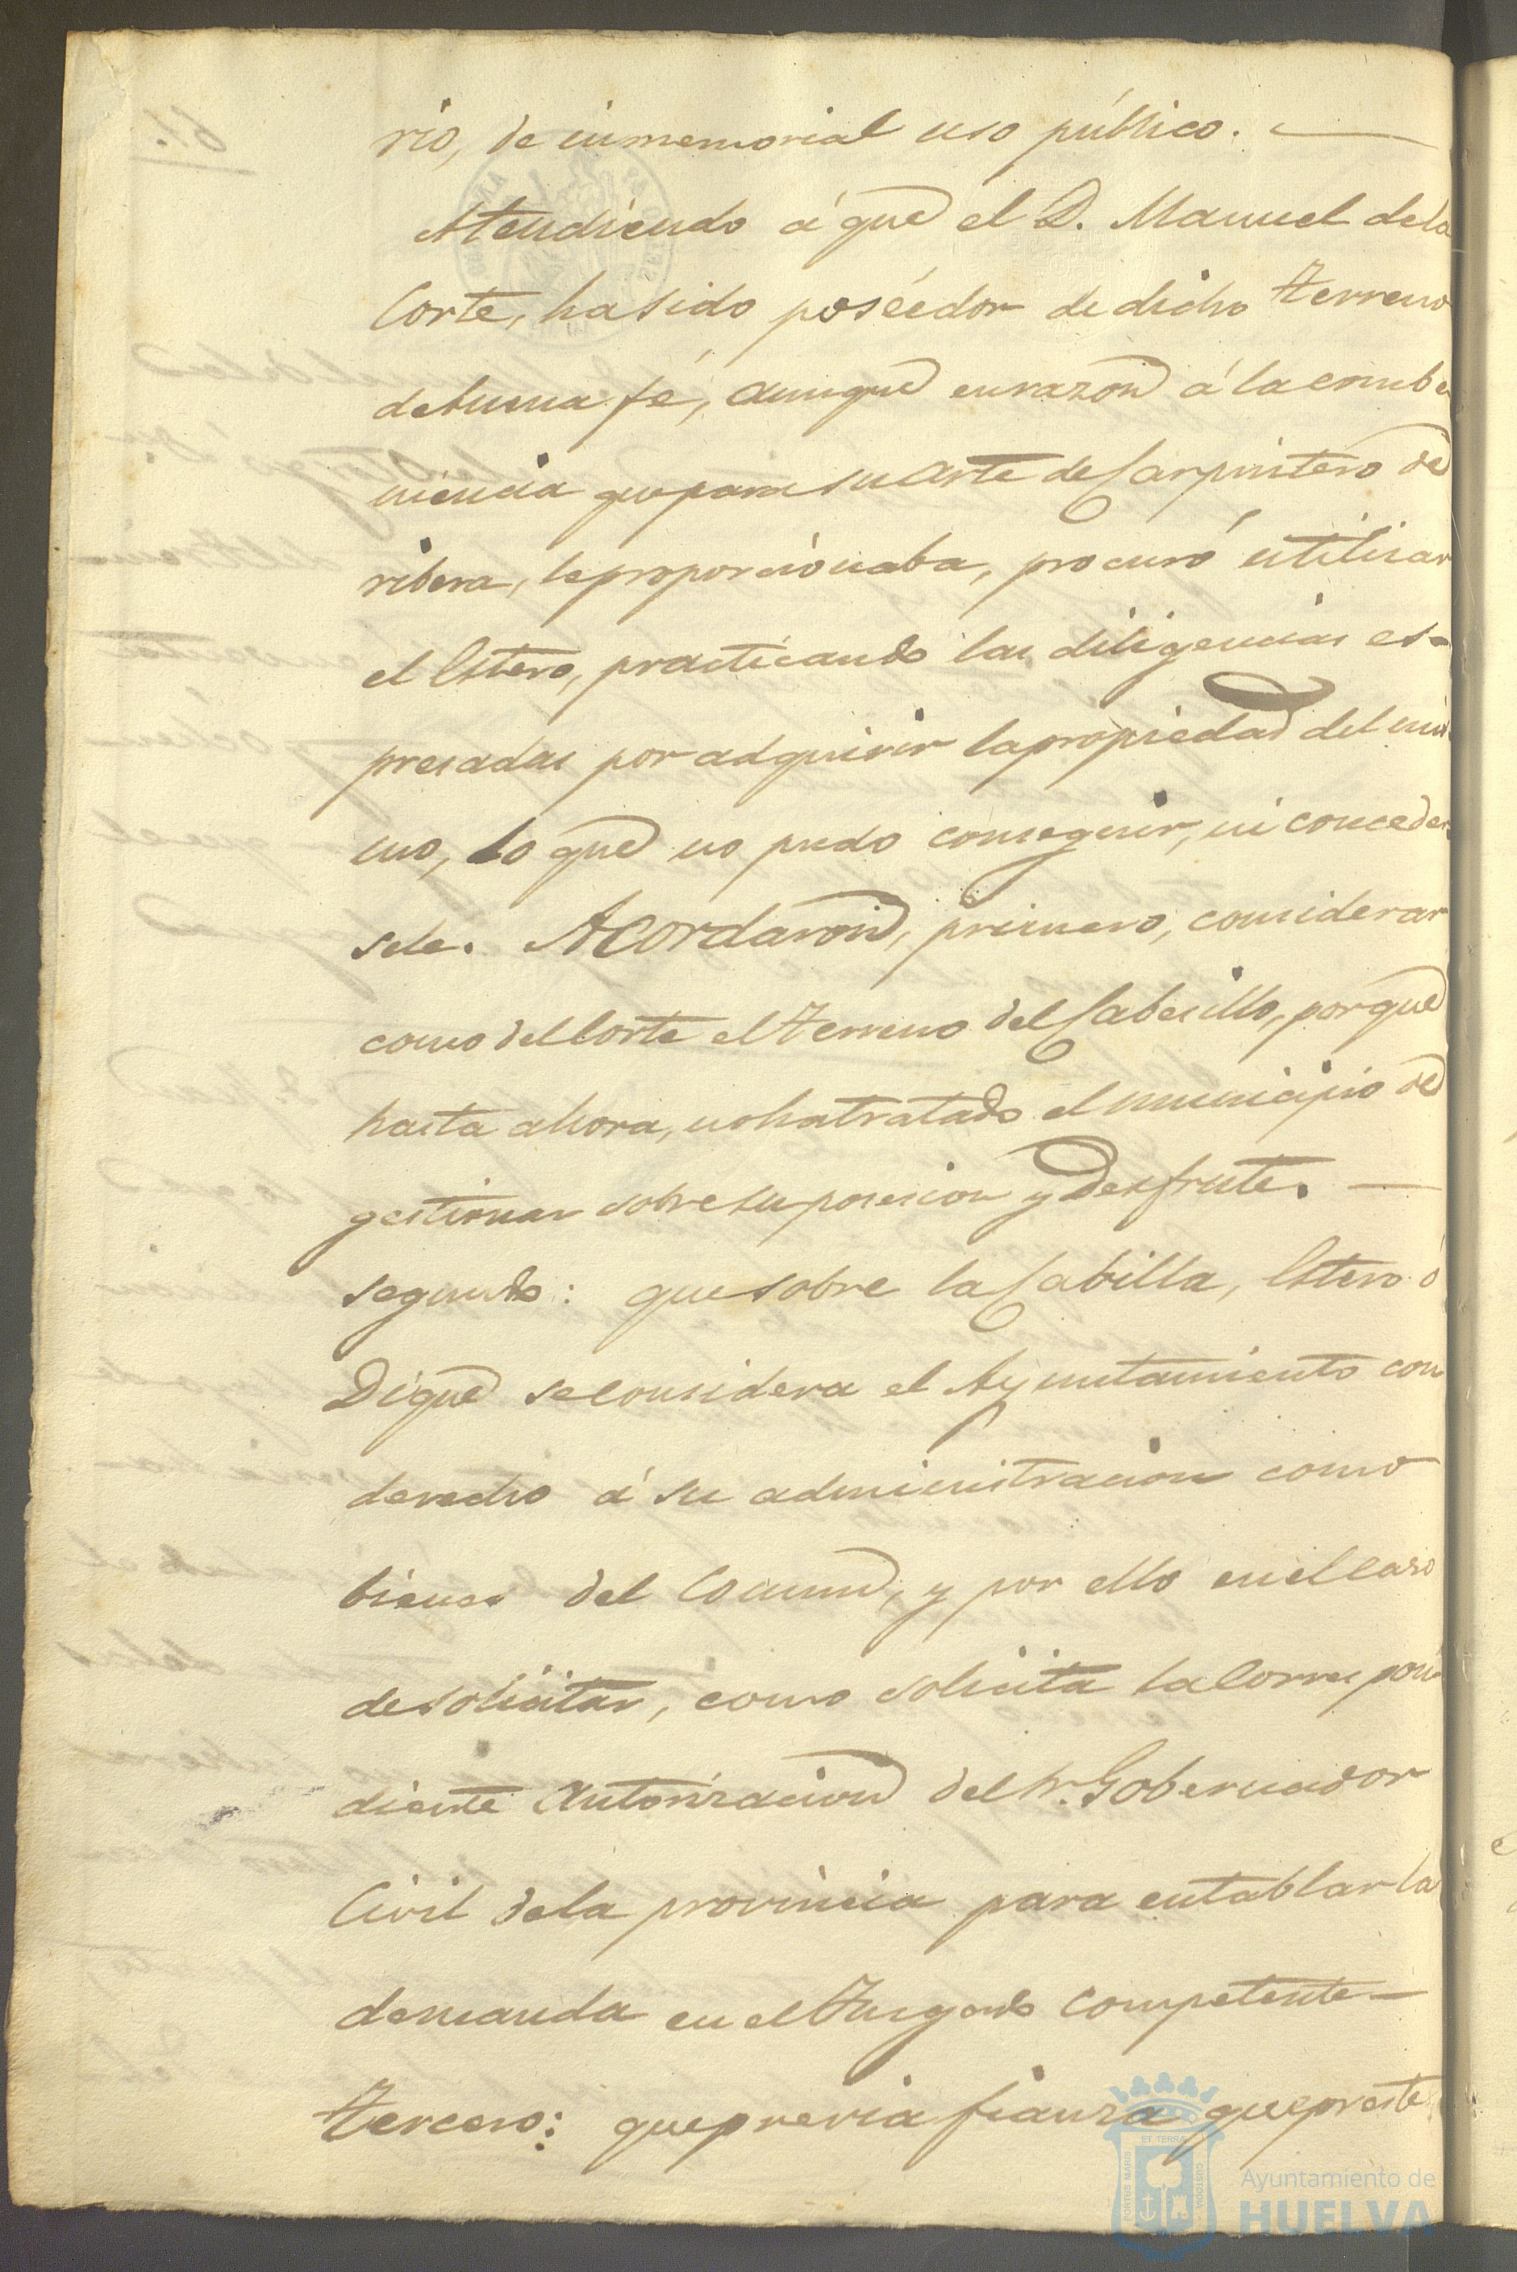 rio, de inmemorial uso público. —
Atendiendo á que el D. Manuel de la
Corte, ha sido poséedor de dicho terreno
de buena fé, aunque en razon á la combe
niencia que para su arte de Carpintero de
ribera, le proporcionaba, procuró utilisar
el Estero, practicando las diligencias es-
presadas por adquirir la propiedad del mis
mo, lo que no pudo conseguir, ni conceder
sele. Acordaron, primero, considerar
como del Corte el terreno del Cabesillo, porque
hasta ahora, no ha tratado el municipio de
gestionar sobre su posesion y desfrute. —
segundo: que sobre la Cabilla, Estero ó
Dique se considera el Ayuntamiento con
derecho á su administracion como
bienes del Comun, y por ello en el caso
de solicitar, como solicita la corres pon
diente autorizacion del Sr. Gobernador
Civil de la provincia para entablar la
demanda en el Jusgado competente —
tercero: que previa fianza que preste
PORTUS MARIS
ET TERRA
CUSTODIA
Ayuntamiento de
HUELVA